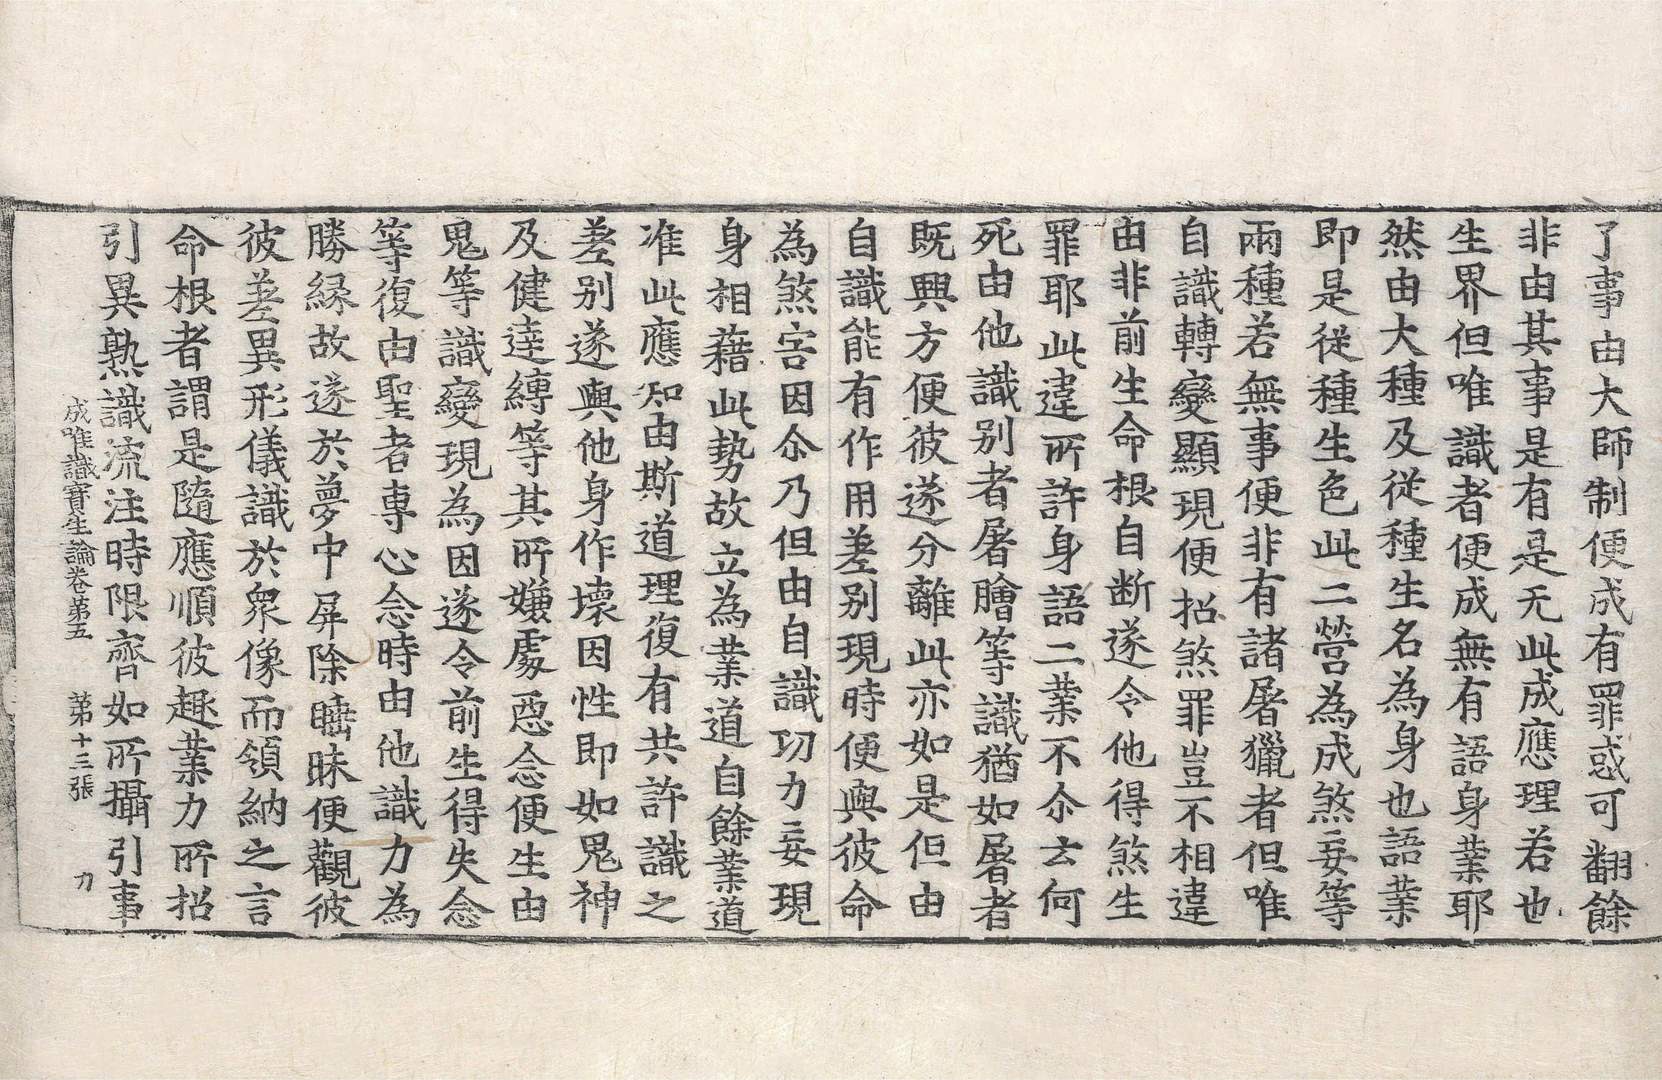 了事由大師制便成有罪或可翻餘
非由其事是有是无此成應理若也
生界但唯識者便成無有語身業耶
然由大種及從種生名為身也語業
即是從種生色此二營為成煞妄等
兩種若無事便非有諸屠獵者但唯
自識轉變顯現便招煞罪豈不相違
由非前生命根自断遂令他得煞生
罪耶此違所許身語二業不尒云何
死由他識别者屠膾等識猶如屠者
既興方便彼遂分離此亦如是但由
自識能有作用差别現時便與彼命
為煞害因尒乃但由自識功力妄現
身相藉此勢故立為業道自餘業道
准此應知由斯道理復有共許識之
差别遂與他身作壞因性即如鬼神
及健達縛等其所嫌處惡念便生由
鬼等識變現為因遂令前生得失念
等復由聖者專心念時由他識力為
勝緣故遂於夢中屏除睡眛便觀彼
彼差異形儀識於衆像而領納之言
命根者謂是隨應順彼趣業力所招
引異熟識流注時限齊如所攝引事
成唯識寶生論卷第五 第十三張 力